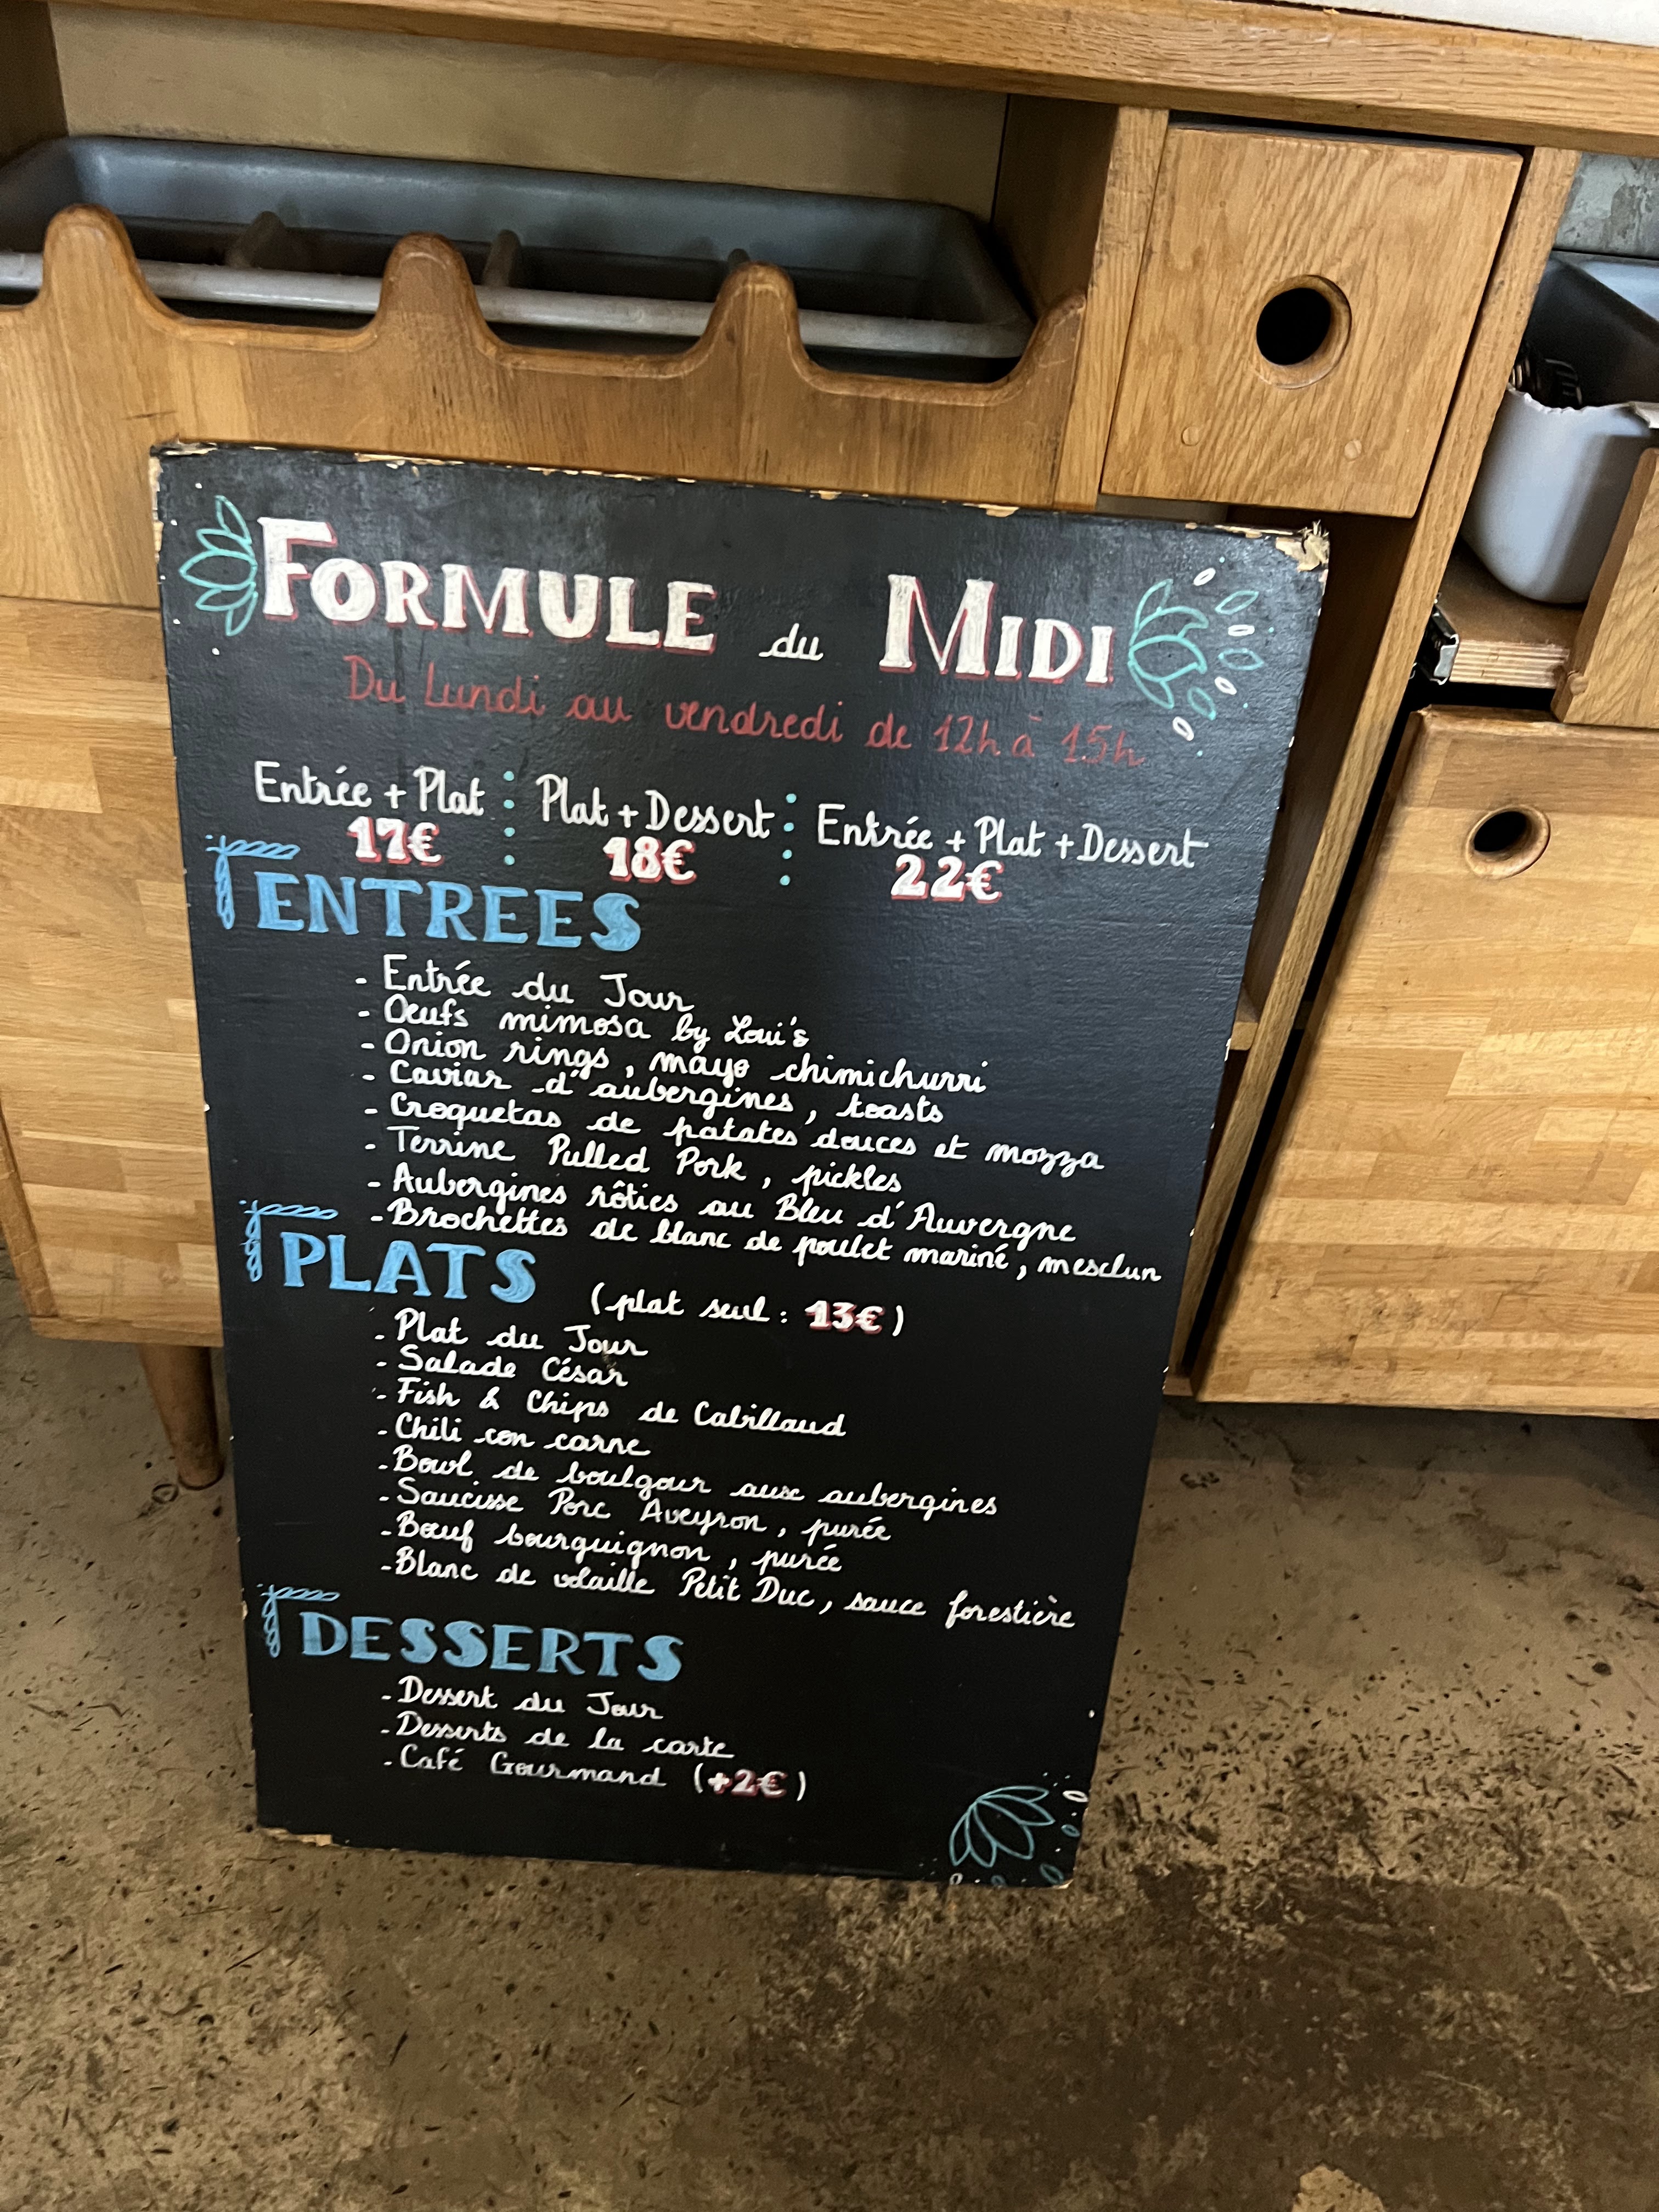 FORMULE du MIDI
Du Lundi au vendredi de 12h à 15h
Entrée + Plat
17€
Plat + Dessert
18€
Entrée + Plat + Dessert
22€
ENTREES
- Entrée du Jour
- Oeufs mimosa by Loui's
- Onion rings, mayo chimichurri
- Caviar d'aubergines, toasts
- Croquetas de patates douces et mozza
- Terrine Pulled Pork, pickles
- Aubergines rôties au Bleu d'Auvergne
- Brochettes de blanc de poulet mariné, mesclun
PLATS (plat seul : 13€)
- Plat du Jour
- Salade César
- Fish & Chips de Cabillaud
- Chili con carne
- Bowl de boulgour aux aubergines
- Saucisse Porc Aveyron, purée
- Bœuf bourguignon, purée
- Blanc de volaille Petit Duc, sauce forestière
DESSERTS
- Dessert du Jour
- Desserts de la carte
- Café Gourmand (+2€)